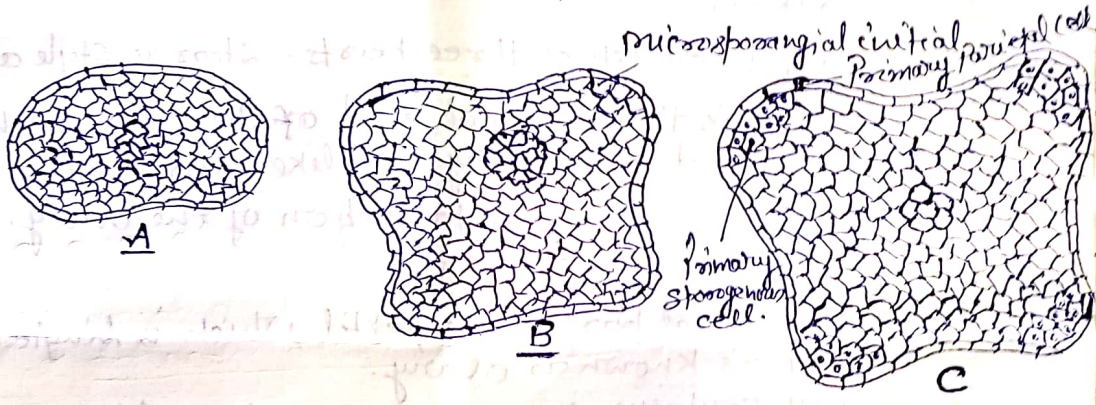 Microsporangial initial
Primary Parietal Cell
Primary
Sporogenous
cell.
A
B
C